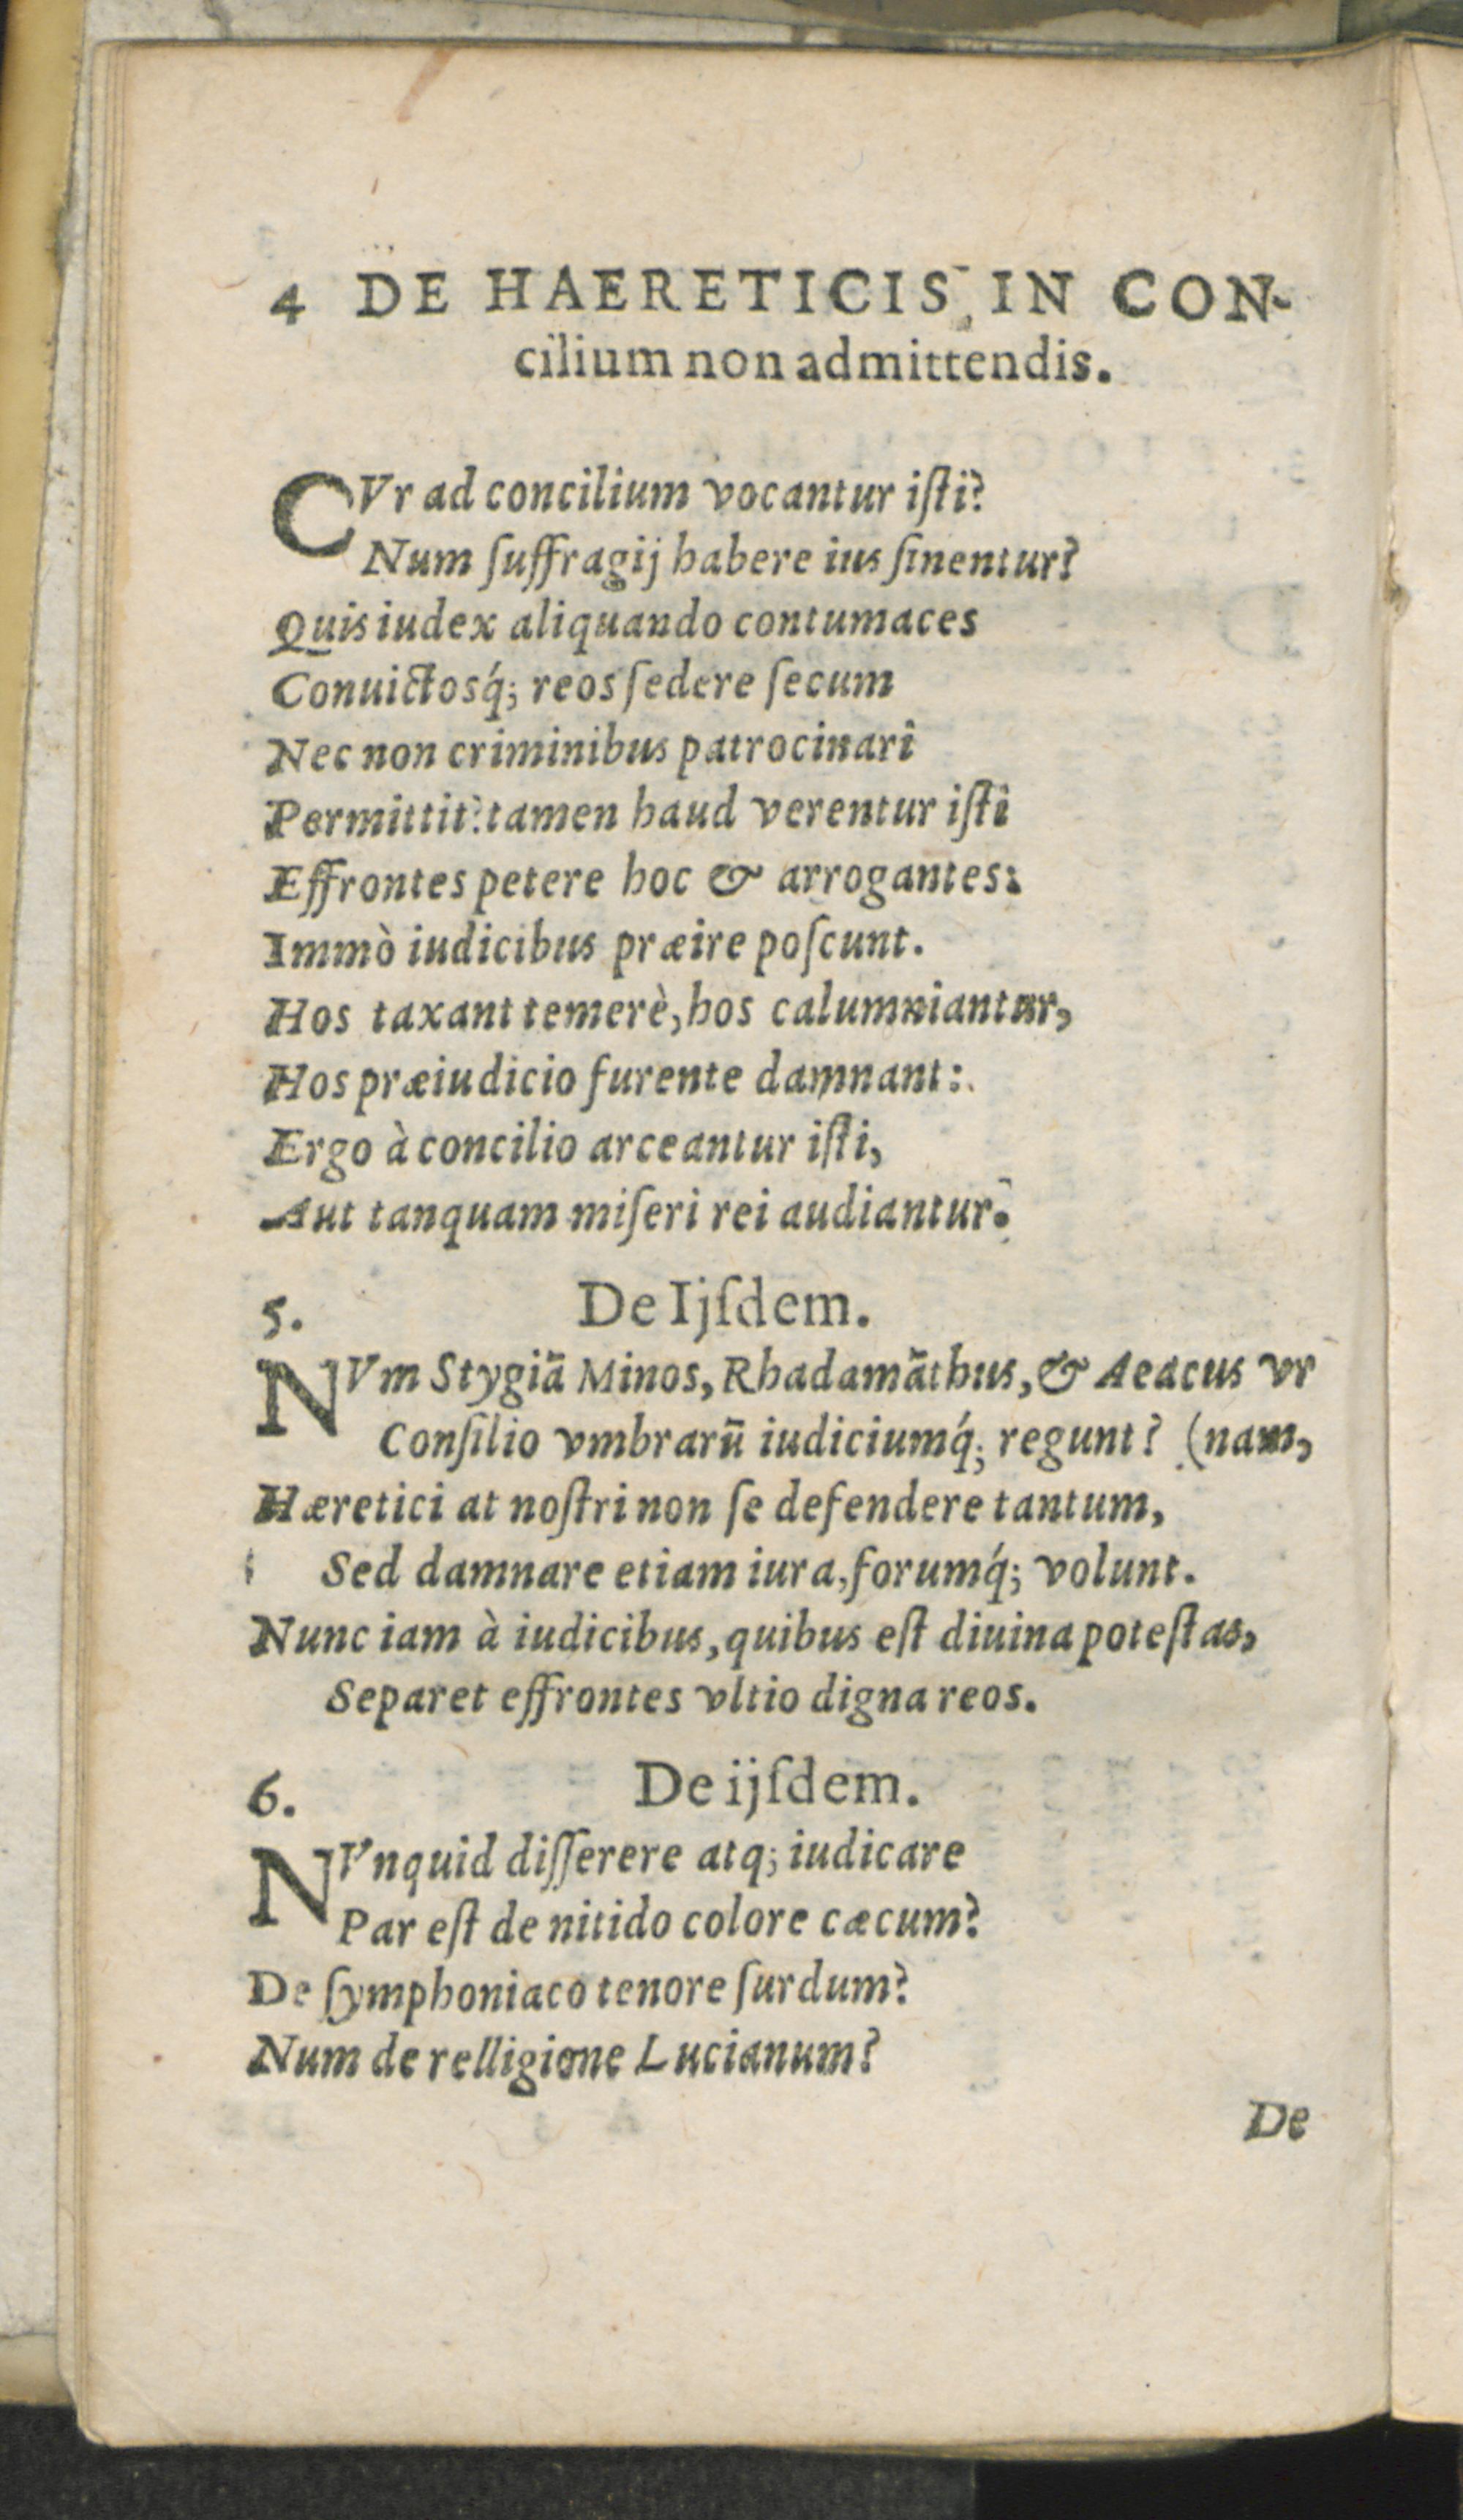 4 DE HAERETICIS IN CON-
cilium non admittendis.
CVr ad concilium vocantur iſti?
Num ſuffragij habere ius ſinentur?
Quis iudex aliquando contumaces
Conuictosq́; reos ſedere ſecum
Nec non criminibus patrocinari
Permittit? tamen haud verentur iſti
Effrontes petere hoc & arrogantes:
Immò iudicibus præire poſcunt.
Hos taxant temerè, hos calumniantur,
Hos præiudicio furente damnant:
Ergo à concilio arceantur iſti,
Aut tanquam miſeri rei audiantur.
5. De Ijſdem.
NVm Stygiã Minos, Rhadamãthus, & Aeacus vr
Conſilio vmbrarũ iudiciumq́; regunt? (nam,
Hæretici at noſtri non ſe defendere tantum,
Sed damnare etiam iura, forumq́; volunt.
Nunc iam à iudicibus, quibus eſt diuina poteſtas,
Separet effrontes vltio digna reos.
6. De ijſdem.
NVnquid diſſerere atq; iudicare
Par eſt de nitido colore cæcum?
De ſymphoniaco tenore ſurdum?
Num de relligione Lucianum?
De